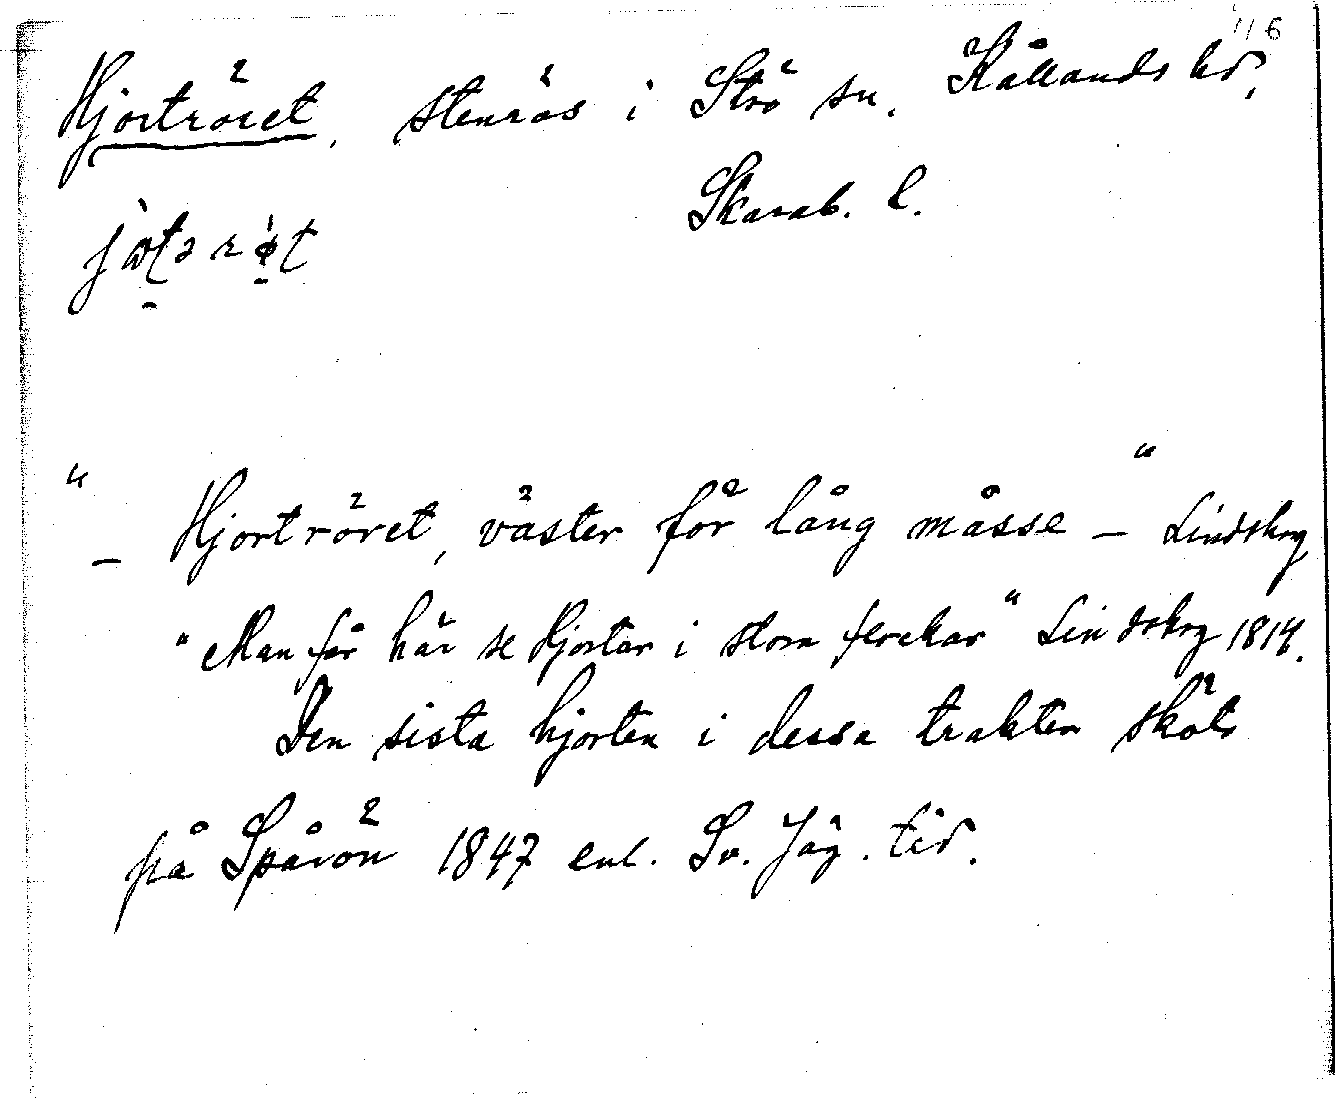 116
Hjortröret, stenrös i Strö sn. Kållands hd,
Skarab. l.
"_ Hjortröret, väster för lång måsse _" Lindskog
"Man får här se Hjortar i stora flockar" Lindskog 1814.
Den sista hjorten i dessa trakter sköts
på Spårön 1847 enl. Sv. Jäg. tid.